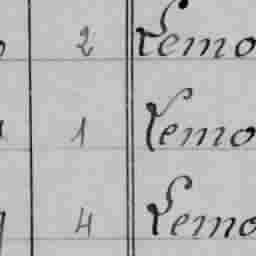 2 Lemo
1 Lemo
4 Lemo